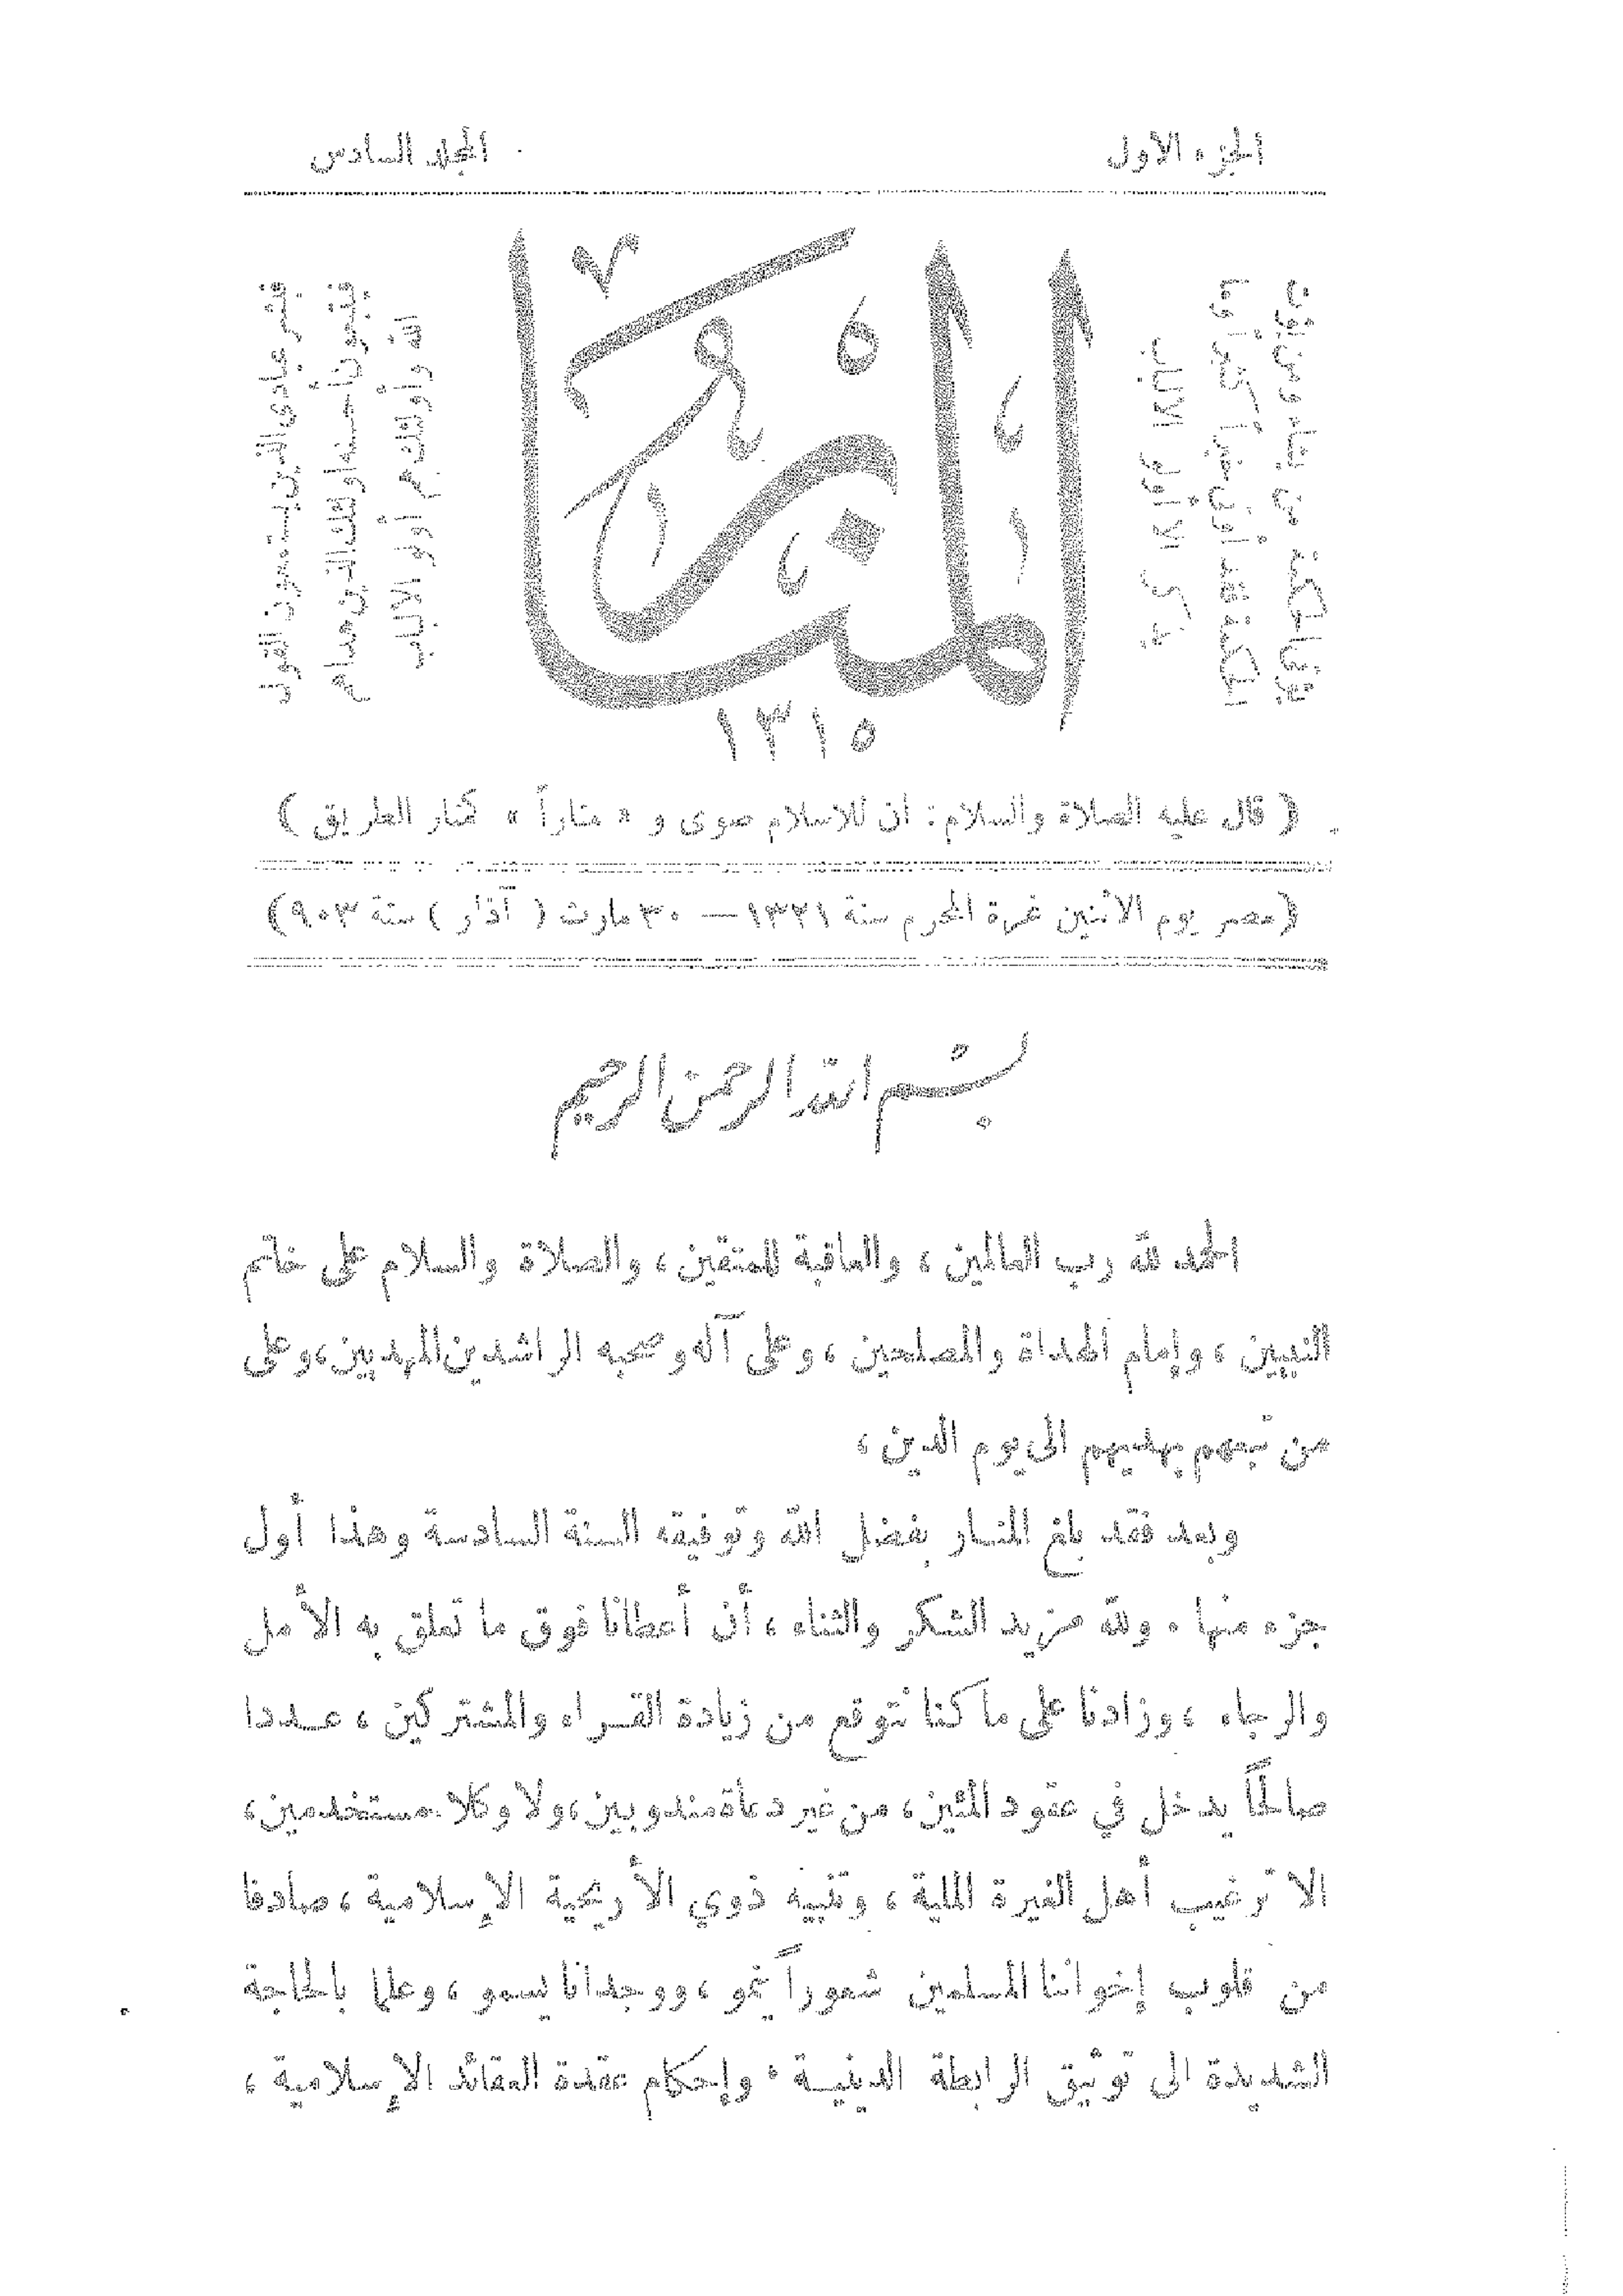 الجزء الاول
المجلد السادس
يؤتي الحكمة من يشاء ومن يؤت
الحكمة فقد أوتي خيرا كثيرا وما
يذكر إلا أولو الألباب
المنار
١٣١٥
فبشر عبادي الذين يستمعون القول
فيتبعون أحسنه أولئك الذين هداهم
الله وأولئك هم أولو الالباب
( قال عليه الصلاة والسلام : ان للاسلام صوى و « مناراً » كمنار الطريق )
(مصر يوم الاثنين غرة المحرم سنة ١٣٢١ — ٣٠ مارث ( آذار ) سنة ٩٠٣)
بسم الله الرحمن الرحيم
الحمد لله رب العالمين ، والعاقبة للمتقين ، والصلاة والسلام على خاتم
النبيين ، وإمام الهداة والمصلحين ، وعلى آله وصحبه الراشدين المهديين، وعلى
من تبعهم بهديهم الى يوم الدين ،
وبعد فقد بلغ المنار بفضل الله وتوفيقه السنة السادسة وهذا أول
جزء منها . ولله مزيد الشكر والثناء ، أن أعطانا فوق ما تعلق به الأمل
والرجاء ، وزادنا على ما كنا نتوقع من زيادة القراء والمشتركين ، عددا
صالحًا يدخل في عقود المئين ، من غير دعاة مندوبين، ولا وكلاء مستخدمين،
الا ترغيب أهل الغيرة الملية ، وتنبيه ذوي الأريحية الإسلامية ، صادفا
من قلوب إخواننا المسلمين شعوراً ينمو ، ووجدانا يسمو ، وعلما بالحاجة
الشديدة الى توثيق الرابطة الدينية ، وإحكام عقدة العقائد الإسلامية ،